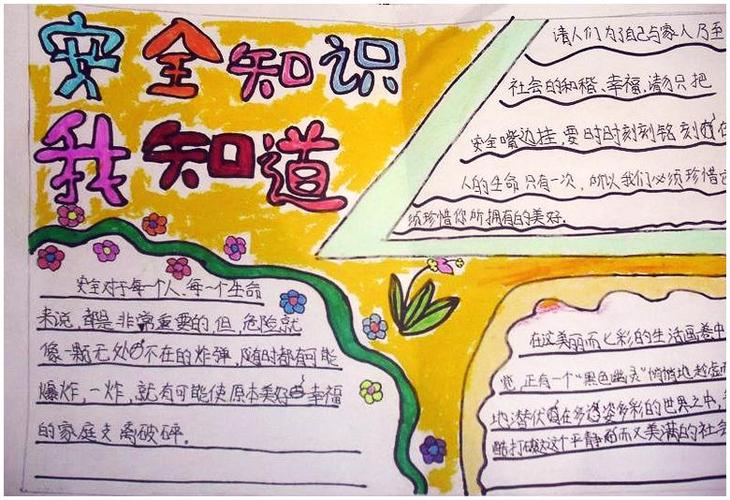 安全知识
我知道
请人们为了自己与家人乃至
社会的和稽、幸福,请勿只把
安全嘴边挂,要时时刻刻铭刻在
人的生命只有一次,所以我们必须珍惜
须珍惜您所拥有的美好.
安全对于每个人、每一个生命
来说,都是非常重要的,但,危险就
像一颗无处不在的炸弹,随时都有可能
爆炸,一炸,就有可能使原本美好幸福
的家庭支离破碎.
在这美丽而七彩的生活画卷中
览,正有一个"黑色幽灵"悄悄地趁虚而
地潜伏在多姿多彩的世界之中,
酷打破这个平静而又美满的社会